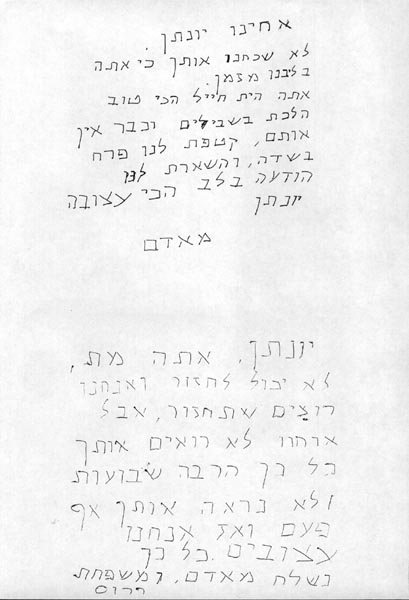 אחינו יונתן.
לא שכחנו אותך כי אתה
בליבנו מזמן.
אתה היית חייל הכי טוב
הלכת בשבילים וכבר אין
אותם, קטפת לנו פרח
בשדה, והשארת לנו
הודעה בלב הכי עצובה
יונתן
מאדם
יונתן, אתה מת,
לא יכול לחזור ואנחנו
רוצים שתחזור, אבל
אנחנו לא רואים אותך
כל כך הרבה שבועות
ולא נראה אותך אף
פעם ואז אנחנו
עצובים כל כך
נשלח מאדם, ומשפחת